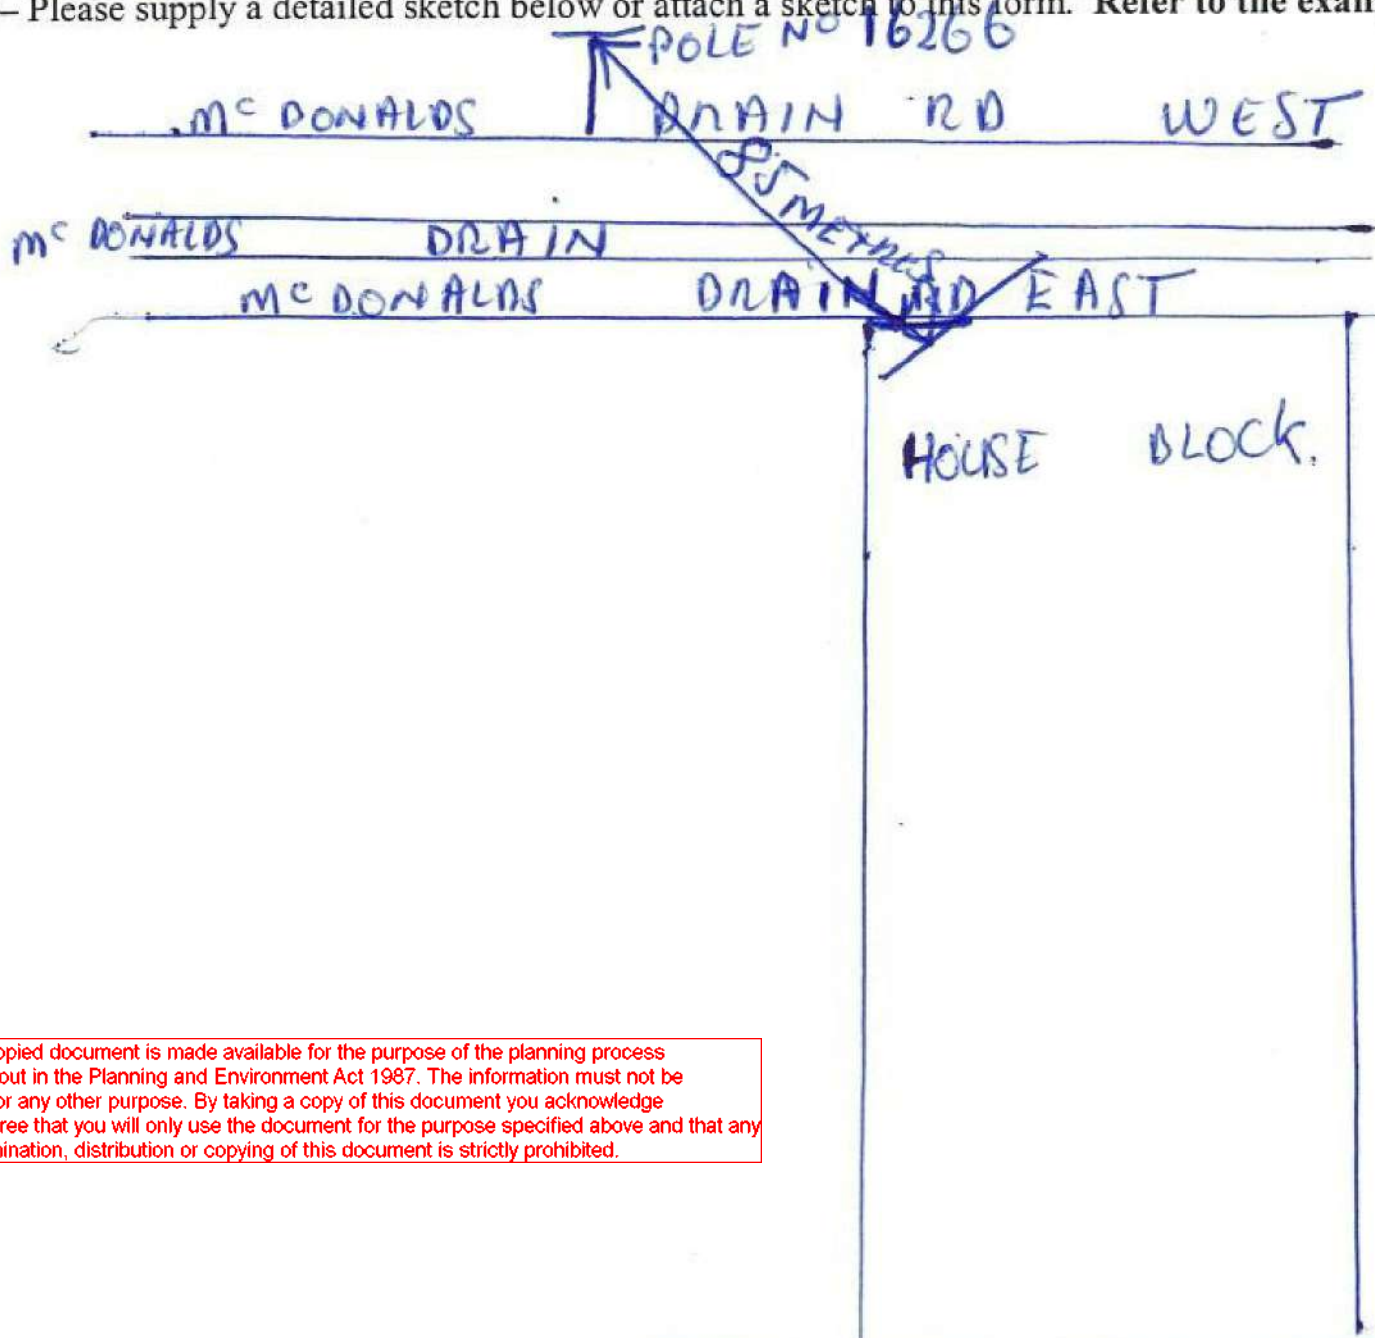 – Please supply a detailed sketch below or attach a sketch to this form. Refer to the exam
POLE NO 16266
Mc DONALDS DRAIN RD WEST
85 METRES
Mc DONALDS DRAIN
Mc DONALDS DRAIN RD EAST
HOUSE BLOCK.
opied document is made available for the purpose of the planning process
out in the Planning and Environment Act 1987. The information must not be
or any other purpose. By taking a copy of this document you acknowledge
ree that you will only use the document for the purpose specified above and that any
ination, distribution or copying of this document is strictly prohibited.